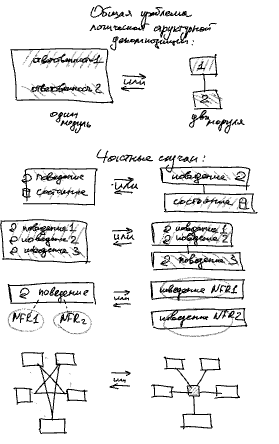 Общая проблема
логической структурной
декомпозиции:
ответственность 1
ответственность 2
или
1
2
один
модуль
два
модуля
Частные случаи:
поведение
состояние
или
поведение
состояние
поведение 1
поведение 2
поведение 3
или
поведение 1
поведение 2
поведение 3
поведение
NFR1
NFR2
или
поведение NFR1
поведение NFR2
или